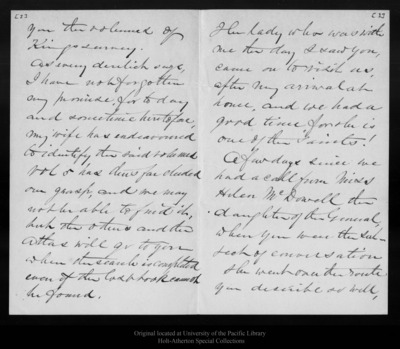 you the volumes of
Kingsevney.
As every devilish says,
I have not forgotten
my promise, for to day
and sometime heretofore,
my wife has endeavored
to identify the said volumes
Vol 5 has thus far eluded
our grasp, and we may
not be able to find it,
but the others and the
Atlas will go to you
when the search is completed
even if the lost book cannot
be found.
The lady who was with
me the day I saw you,
came on to visit us,
after my arrival at
home, and we had a
good time for she is
one of the Saints!
A few days since we
had a call from Miss
Helen McDowell the
daughter of the General,
when you were the sub-
ject of conversation
She went over the route
you describe so well,
Original located at University of the Pacific Library
Holt-Atherton Special Collections